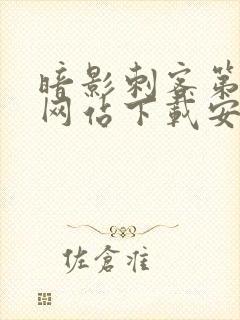 暗影刺客第
网站下载安
佐倉准